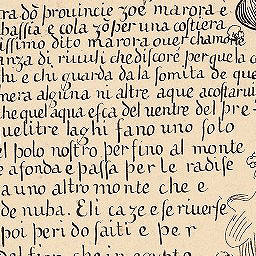 ra dõ prouincie zoe marora e
bassia e cola zõ per una costiera
issimo dito marora ouer chamore
anza di riuuli che discore per que la c
hi e chi guarda da la somita de que
mera alguna ni altre aque acostarui
che quel aqua esca del uentre del pre
uelitre laghi fano uno solo
el polo nostro perfino al monte
e afonda e passa per le radise
a uno altro monte che e
de nuba. Eli caze e se riuerse
poi per i do saiti e per
del fiar che in egypto